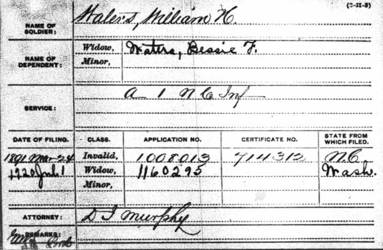 (3-H-3)
NAME OF SOLDIER: Waters, William H.
NAME OF DEPENDENT: Widow, Waters, Bessie F.
Minor,
SERVICE: A 1 N C Inf
DATE OF FILING. CLASS. APPLICATION NO. CERTIFICATE NO. STATE FROM WHICH FILED.
1891 Mar 24 Invalid, 1008013 711312 N.C.
1920 Jul 1 Widow, 1160295 Wash.
Minor,
ATTORNEY: D I Murphy
REMARKS: